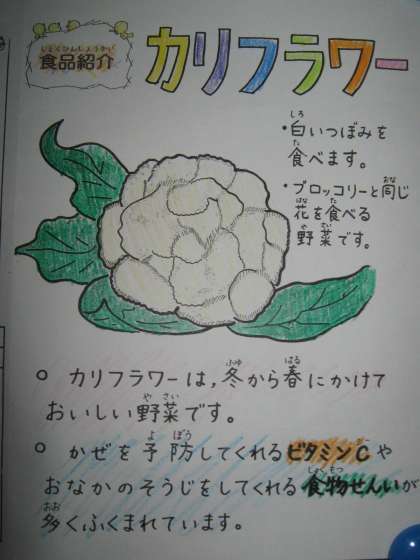 しょくひんしょうかい
食品紹介
カリフラワー
・白いつぼみを
食べます。
・ブロッコリーと同じ
花を食べる
野菜です。
○ カリフラワーは,冬から春にかけて
おいしい野菜です。
○ かぜを予防してくれるビタミンCや
おなかのそうじをしてくれる食物せんいが
多くふくまれています。